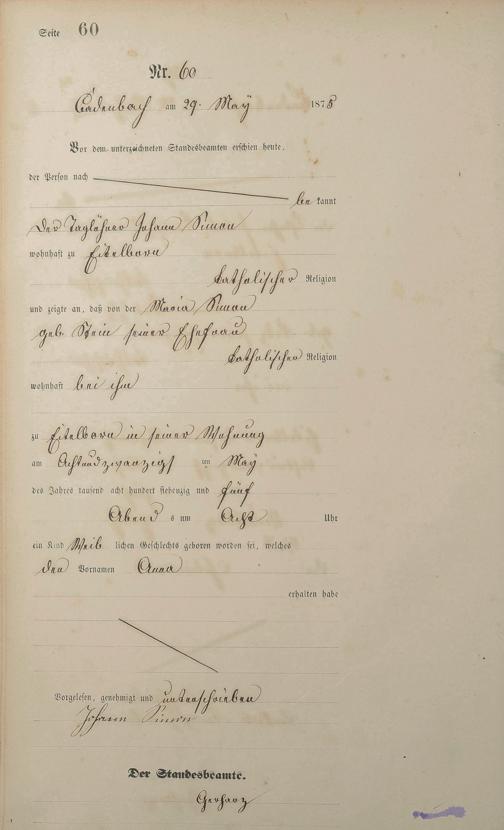 Seite 60
Nr. 60
Cadenbach am 29. May 1875
Vor dem unterzeichneten Standesbeamten erschien heute,
der Person nach
be kannt
Der Taglöhner Johann Simon
wohnhaft zu Eitelborn
katholischer Religion
und zeigte an, daß von der Maria Simon
geb. Stein seiner Ehefrau
katholischer Religion
wohnhaft bei ihm
zu Eitelborn in seiner Wohnung
am Achtundzwanzigst en May
des Jahres tausend acht hundert siebenzig und fünf
Abend s um Acht Uhr
ein Kind Weib lichen Geschlechts geboren worden sei, welches
den Vornamen Anna
erhalten habe
Vorgelesen, genehmigt und unterschrieben
Johann Simon
Der Standesbeamte.
Gerharz